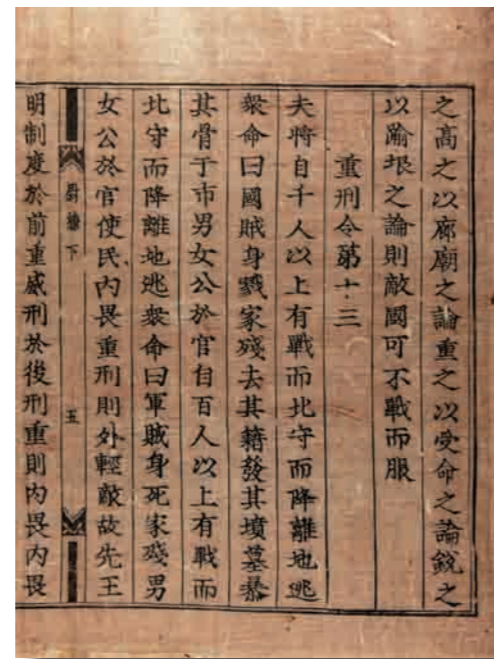 之高之以廊廟之論重之以受命之論銳之
以踰垠之論則敵國可不戰而服
重刑令第十三
夫將自千人以上有戰而北守而降離地逃
衆命曰國賊身戮家殘去其籍發其墳墓暴
其骨于市男女公於官自百人以上有戰而
北守而降離地逃衆命曰軍賊身死家殘男
女公於官使民內畏重刑則外輕敵故先王
尉繚下
五
明制度於前重威刑於後刑重則內畏內畏